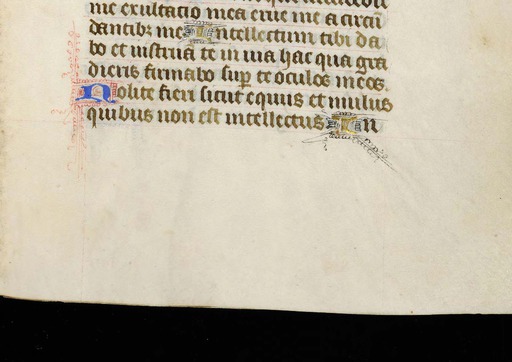 me exultatio mea erue me a circū
dantibꝫ me Intellectum tibi da
bo et instruā te in uia hac qua gra
dieris firmabo suꝑ te oculos meos.
Nolite fieri sicut equus et mulus
quibus non est intellectus In